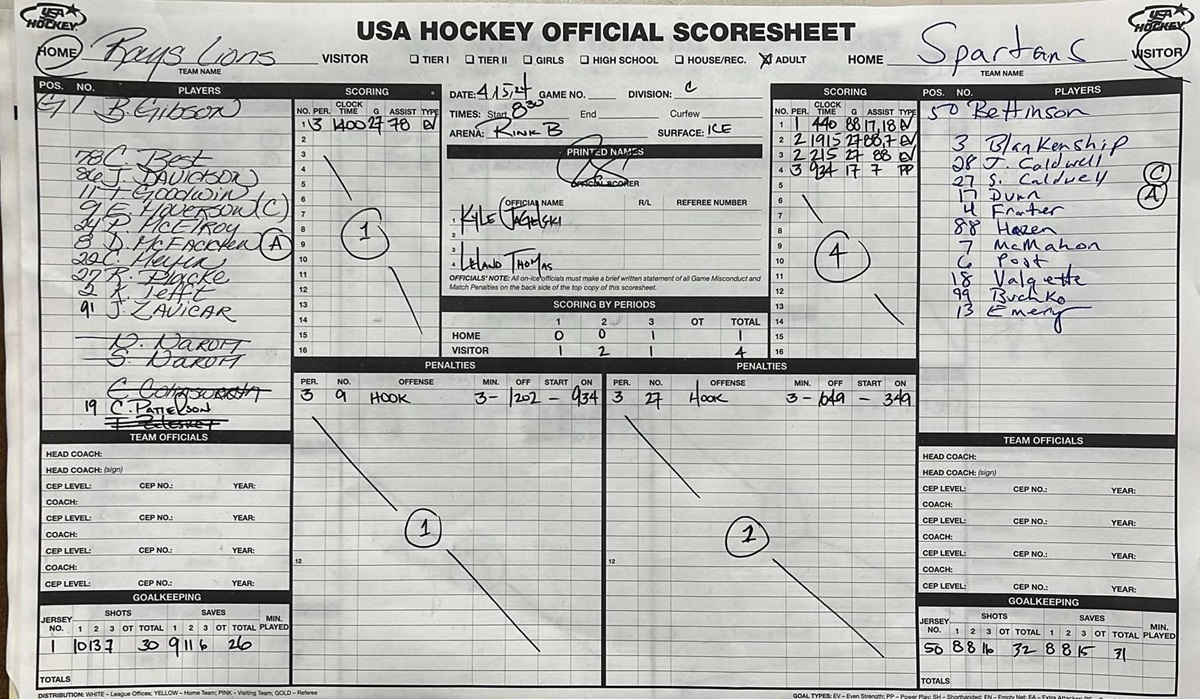 USA HOCKEY
USA HOCKEY OFFICIAL SCORESHEET
USA HOCKEY
HOME Rays Lions VISITOR
TEAM NAME
☐ TIER I ☐ TIER II ☐ GIRLS ☐ HIGH SCHOOL ☐ HOUSE/REC. ☒ ADULT
HOME Spartans VISITOR
TEAM NAME
POS. NO. PLAYERS
G 1 B. Gibson
78 C. Best
86 J. DAVIDSON
11 T. GOODWIN
9 E. HOVERSON (C)
24 P. McELROY
8 D. McEACHERN (A)
22 C. Meyer
27 R.
2 K. Tefft
91 J. ZAVICAR
N. NAROTT
S. NAROTT
19 C. PATTERSON
SCORING
NO. PER. CLOCK TIME G ASSIST TYPE
1 3 1400 27 78 EV
2
3
4
5
6
7
8
9
10
11
12
13
14
15
16
1
DATE: 4/15/24 GAME NO. DIVISION: C
TIMES: Start 8:30 End Curfew
ARENA: RINK B SURFACE: ICE
PRINTED NAMES
OFFICIAL SCORER
OFFICIAL NAME R/L REFEREE NUMBER
1 KYLE JAGIELSKI
2
3 LELAND THOMAS
4
OFFICIALS' NOTE: All on-ice officials must make a brief written statement of all Game Misconduct and
Match Penalties on the back side of the top copy of this scoresheet.
SCORING BY PERIODS
1 2 3 OT TOTAL
HOME 0 0 1 1
VISITOR 1 2 1 4
SCORING
NO. PER. CLOCK TIME G ASSIST TYPE
1 1 440 88 17,18 EV
2 2 1915 27 88,7 EV
3 2 215 27 88 EV
4 3 934 17 7 PP
5
6
7
8
9
10
11
12
13
14
15
16
4
POS. NO. PLAYERS
50 Bettinson
3 Blankenship
28 J. Caldwell
27 S. Caldwell (C)
17 Dunn (A)
4
88 Hazen
7 McMahon
6 Post
18 Valqette
99 Buchko
13 Emery
PENALTIES
PER. NO. OFFENSE MIN. OFF START ON
3 9 HOOK 3 - 1202 - 934
12
1
PENALTIES
PER. NO. OFFENSE MIN. OFF START ON
3 27 HOOK 3 - 649 - 349
12
1
TEAM OFFICIALS
HEAD COACH:
HEAD COACH: (sign)
CEP LEVEL: CEP NO.: YEAR:
COACH:
CEP LEVEL: CEP NO.: YEAR:
COACH:
CEP LEVEL: CEP NO.: YEAR:
COACH:
CEP LEVEL: CEP NO.: YEAR:
GOALKEEPING
JERSEY NO. SHOTS 1 2 3 OT TOTAL SAVES 1 2 3 OT TOTAL MIN. PLAYED
1 10 13 7 30 9 11 6 26
TOTALS
TEAM OFFICIALS
HEAD COACH:
HEAD COACH: (sign)
CEP LEVEL: CEP NO.: YEAR:
COACH:
CEP LEVEL: CEP NO.: YEAR:
COACH:
CEP LEVEL: CEP NO.: YEAR:
COACH:
CEP LEVEL: CEP NO.: YEAR:
GOALKEEPING
JERSEY NO. SHOTS 1 2 3 OT TOTAL SAVES 1 2 3 OT TOTAL MIN. PLAYED
50 8 8 16 32 8 8 15 31
TOTALS
DISTRIBUTION: WHITE – League Offices; YELLOW – Home Team; PINK – Visiting Team; GOLD – Referee
GOAL TYPES: EV – Even Strength; PP – Power Play; SH – Shorthanded; EN – Empty Net; EA – Extra Attacker;